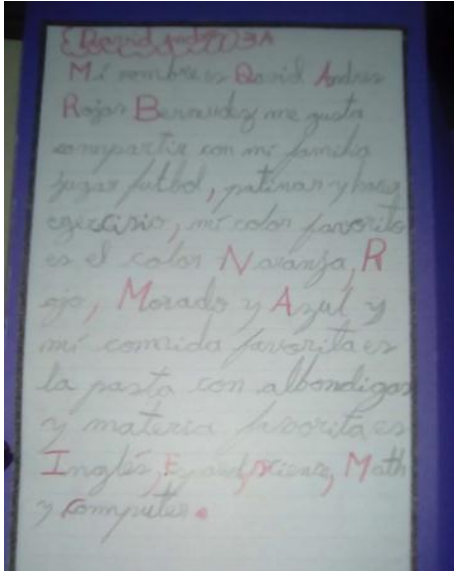 Mi nombre es David Andres
Rojas Bermudez me gusta
compartir con mi familia
jugar futbol, patinar y hacer
egercisio, mi color favorito
es el color Naranja, R
ojo, Morado y Azul y
mi comida favorita es
la pasta con albondigas
y materia favorita es
Inglés, Science, Math
y computer.